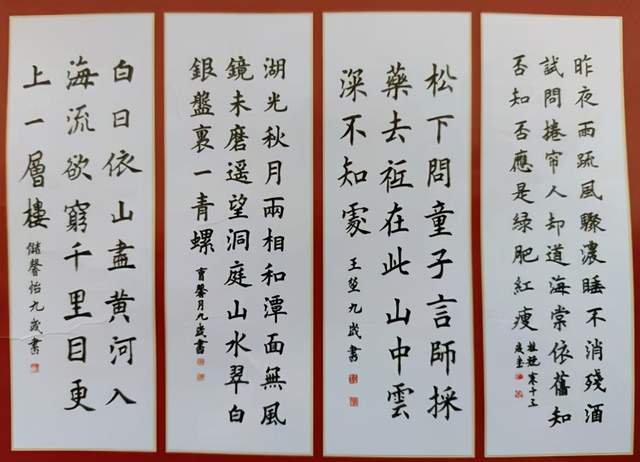 昨夜雨疏風驟濃睡不消殘酒
試問捲帘人却道海棠依舊知
否知否應是绿肥紅瘦
十三
松下問童子言師採
藥去祗在此山中雲
深不知處
王 九歲書
湖光秋月兩相和潭面無風
鏡未磨遥望洞庭山水翠白
銀盤裏一青螺
馨月九歲書
白日依山盡黄河入
海流欲窮千里目更
上一層樓
儲馨怡九歲書